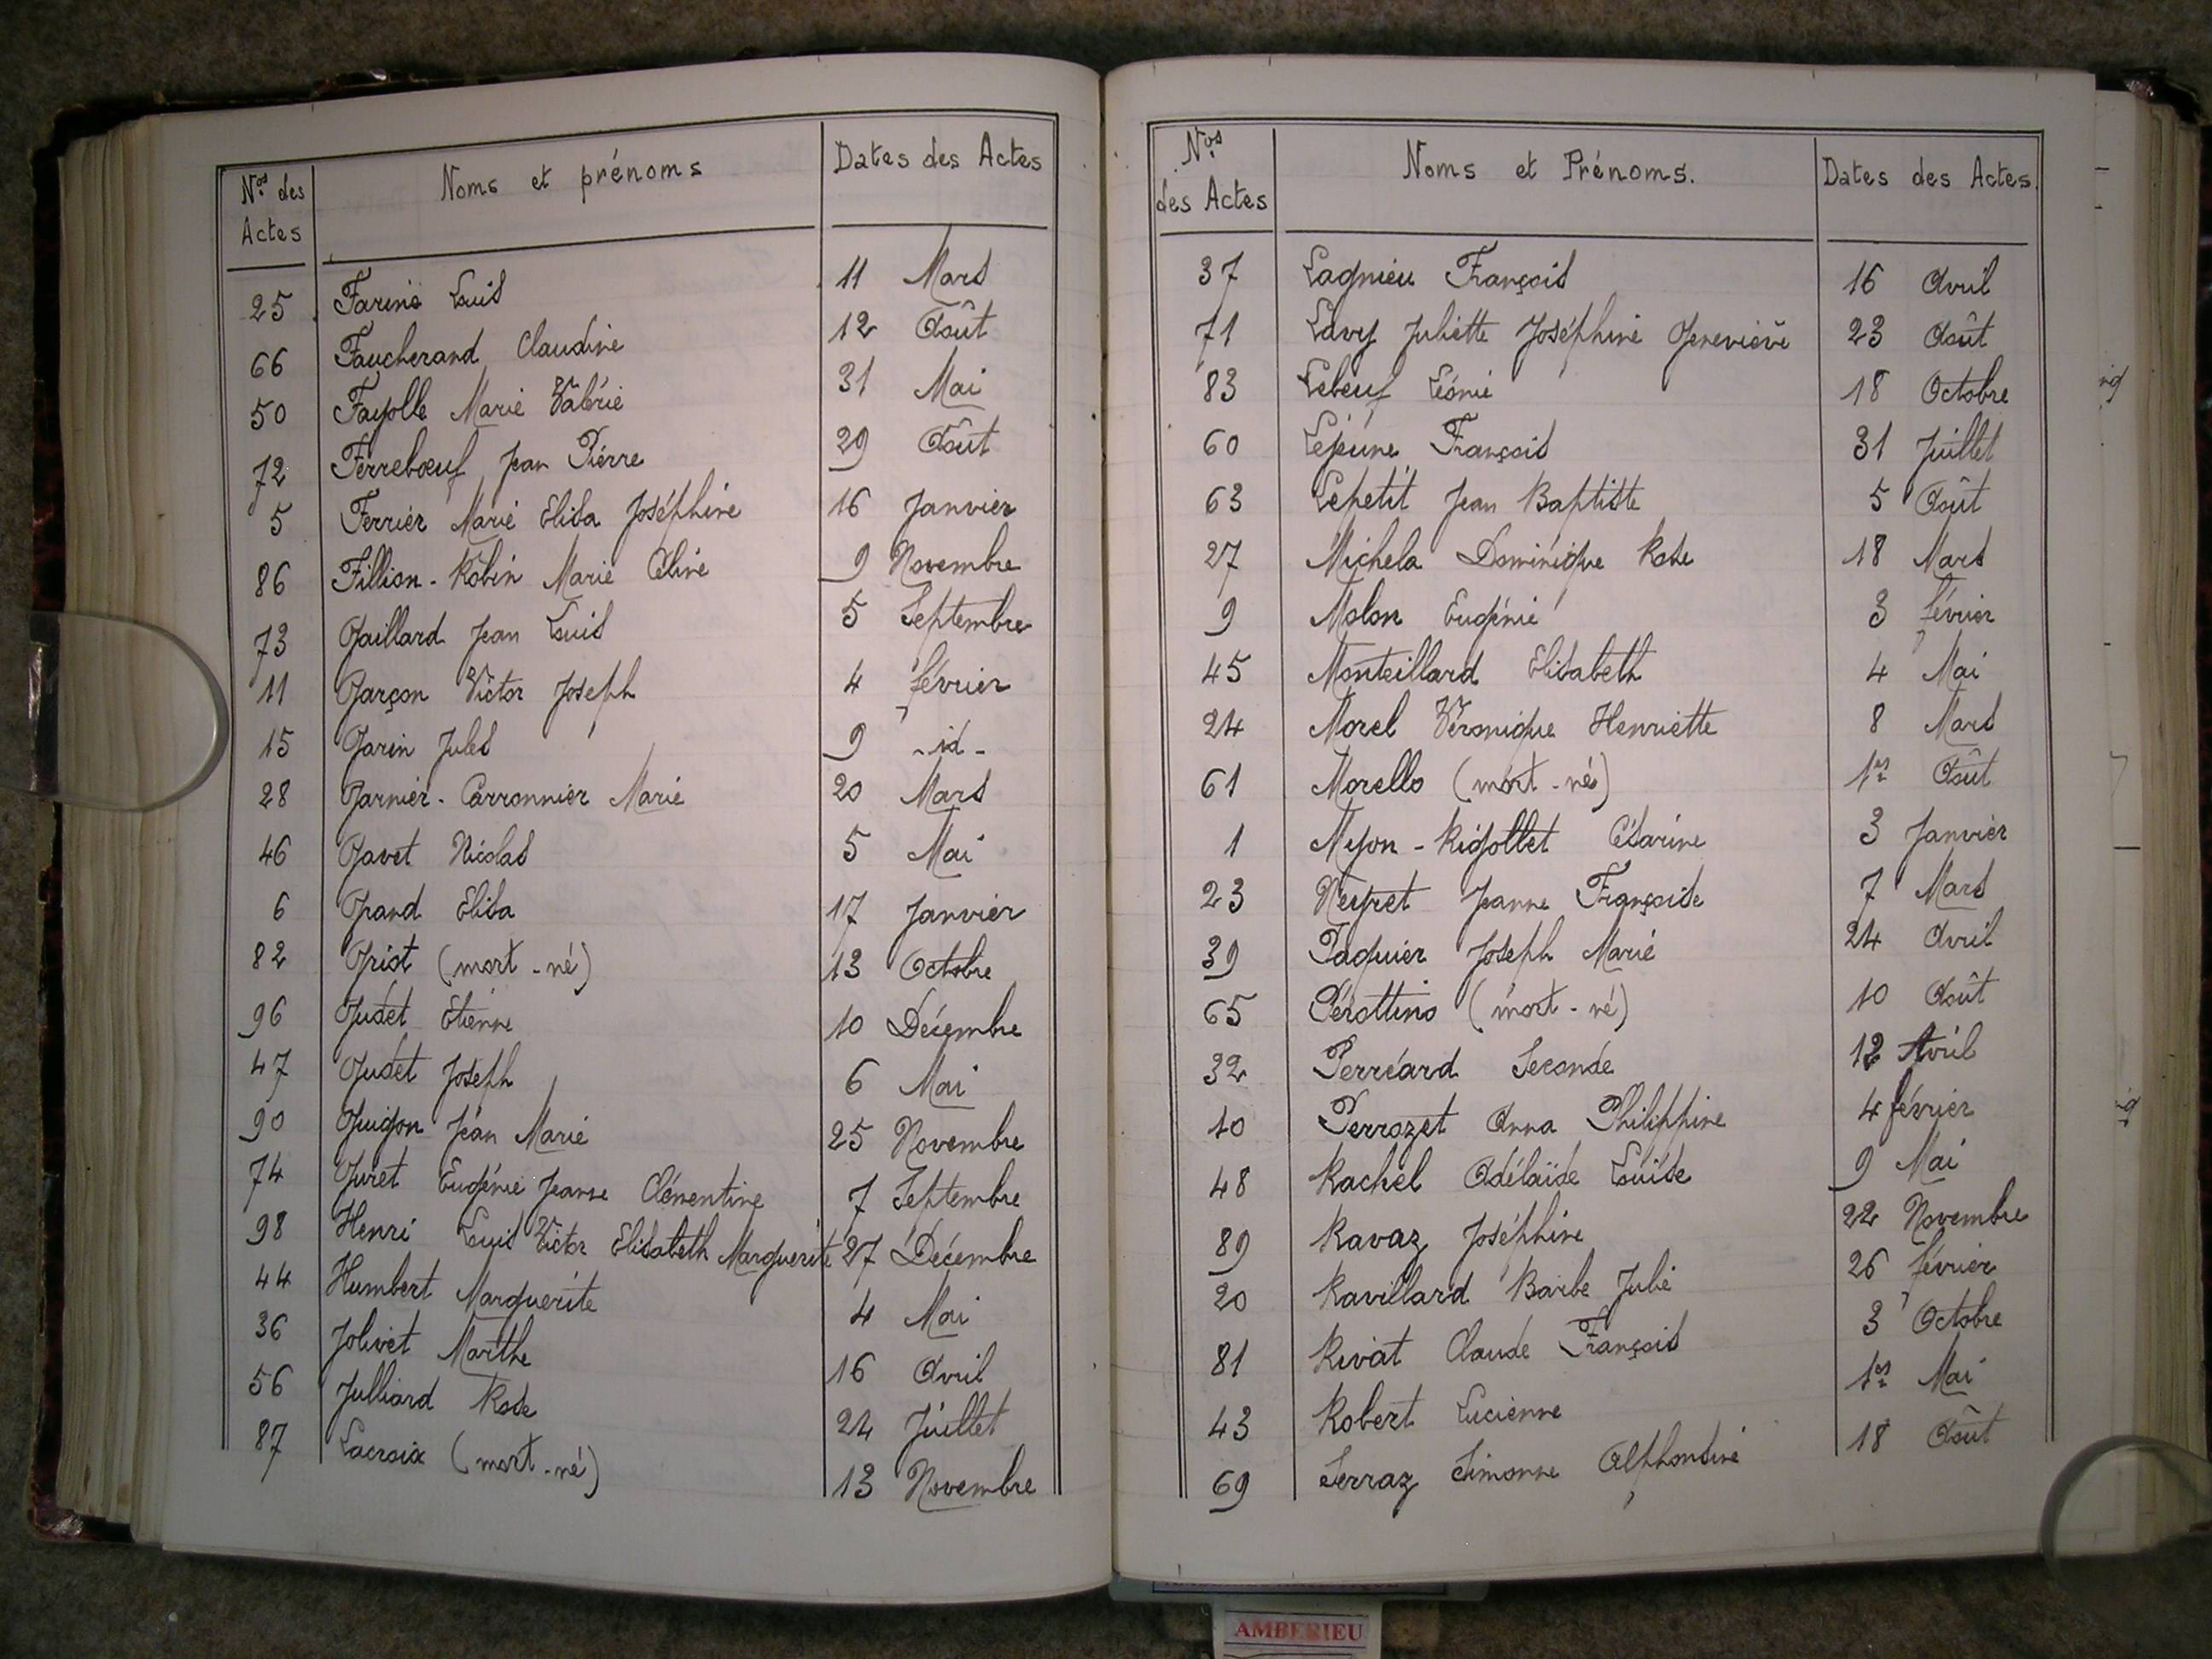 Nos des Actes Noms et prénoms Dates des Actes
25 Farine Louis 11 Mars
66 Faucherand Claudine 12 Août
50 Fayolle Marie Valérie 31 Mai
72 Ferrebœuf Jean Pierre 29 Août
5 Ferrier Marie Elisa Joséphine 16 Janvier
86 Fillion-Robin Marie Céline 9 Novembre
73 Gaillard Jean Louis 5 Septembre
11 Garçon Victor Joseph 4 février
15 Garin Jules 9 -id-
28 Garnier-Carronnier Marie 20 Mars
46 Gavet Nicolas 5 Mai
6 Grand Elisa 17 Janvier
82 Grist (mort-né) 13 Octobre
96 Gudet Etienne 10 Décembre
47 Gudet Joseph 6 Mai
90 Guigon Jean Marie 25 Novembre
74 Guret Eugénie Jeanne Clémentine 7 Septembre
98 Henri Louis Victor Elisabeth Marguerite 27 Décembre
44 Humbert Marguerite 4 Mai
36 Jolivet Marthe 16 Avril
56 Julliard Rose 24 Juillet
87 Lacroix (mort-né) 13 Novembre
Nos des Actes Noms et Prénoms. Dates des Actes.
37 Lagnieu François 16 Avril
71 Lavy Juliette Joséphine Geneviève 23 Août
83 Lebeuf Léonie 18 Octobre
60 Lejeune François 31 Juillet
63 Lepetit Jean Baptiste 5 Août
27 Michela Dominique Rose 18 Mars
9 Molon Eugénie 3 février
45 Monteillard Elisabeth 4 Mai
24 Morel Véronique Henriette 8 Mars
61 Morello (mort-né) 1er Août
1 Myon-Rigollet Césarine 3 Janvier
23 Neyret Jeanne Françoise 7 Mars
39 Paquier Joseph Marie 24 Avril
65 Pérottino (mort-né) 10 Août
32 Perréard Seconde 12 Avril
10 Perrozet Anna Philippine 4 février
48 Rachel Adélaïde Louise 9 Mai
89 Ravaz Joséphine 22 Novembre
20 Ravillard Barbe Julie 26 février
81 Rivat Claude François 3 Octobre
43 Robert Lucienne 1er Mai
69 Serraz Simonne Alphonsine 18 Août
AMBERIEU